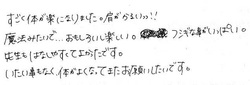 すごく体が楽になりました。肩がかるいっ!!
魔法みたいで… おもしろいし楽しい。フシギな事がいっぱい。
先生もはなしやすくてよかったです。
いたい事もなく、体がよくなってまたお願いしたいです。